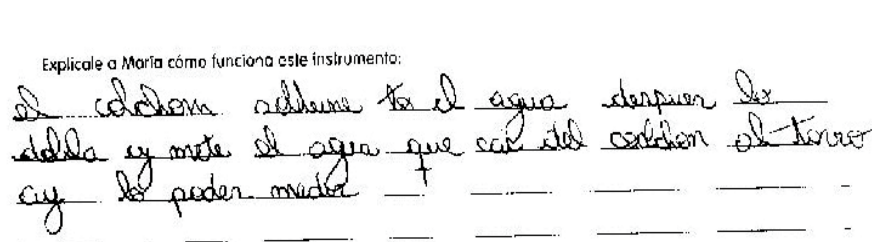 Explícale a María cómo funciona este instrumento:
el colchom adhieme to el agua despuen lo
dobla ey mete el agua que cai del colchon al tarro
ay lo poder medir